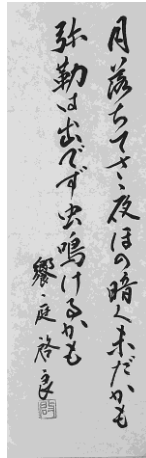 月落ちてさ夜ほの暗く未だかも
弥勒は出でず虫鳴けるかも
饗庭啓良